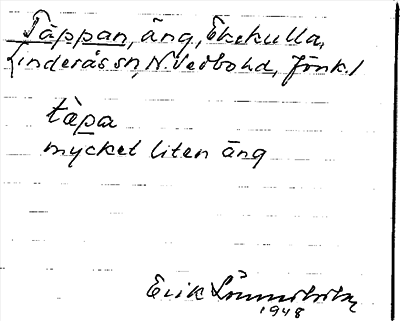 Täppan, äng, Ekekulla,
Linderås sn, N. Vedbo hd, Jönk. l
tàpa
mycket liten äng
Erik
1948